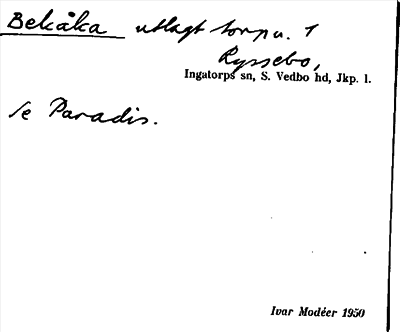 Bekåka utlagt torp u. 1
Ryssebo,
Ingatorps sn, S. Vedbo hd, Jkp. l.
Se Paradis.
Ivar Modéer 1950